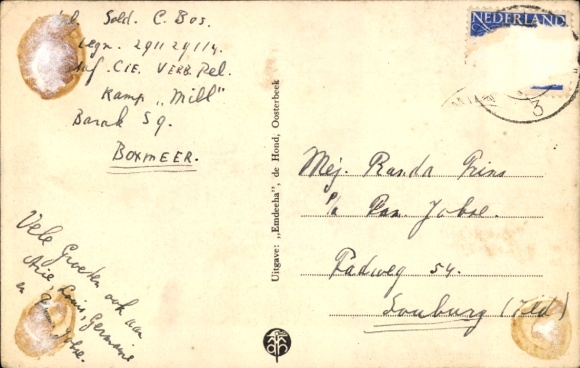 Sold. C. Bos.
Legn. 2911291114.
CIE. VERB. Pel.
Kamp „Mill"
Barak 59.
BOXMEER.
Vele Groeten ook aan
Arie, Louis, Germaine
en Jobse.
Uitgave: „Emdeeha", de Hond, Oosterbeek
NEDERLAND
3
Mej. Randa Prins
p/a Fam. Jobse.
Padweg 54.
Souburg (Zld)